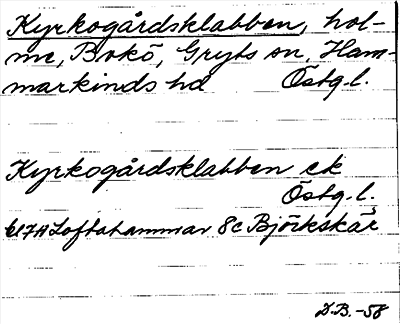 Kyrkogårdsklabben, hol-
me, Bokö, Gryts sn, Ham-
markinds hd Östg.l.
Kyrkogårdsklabben ek
Östg.l.
Loftahammar 8c Björkskär
D.B.-58